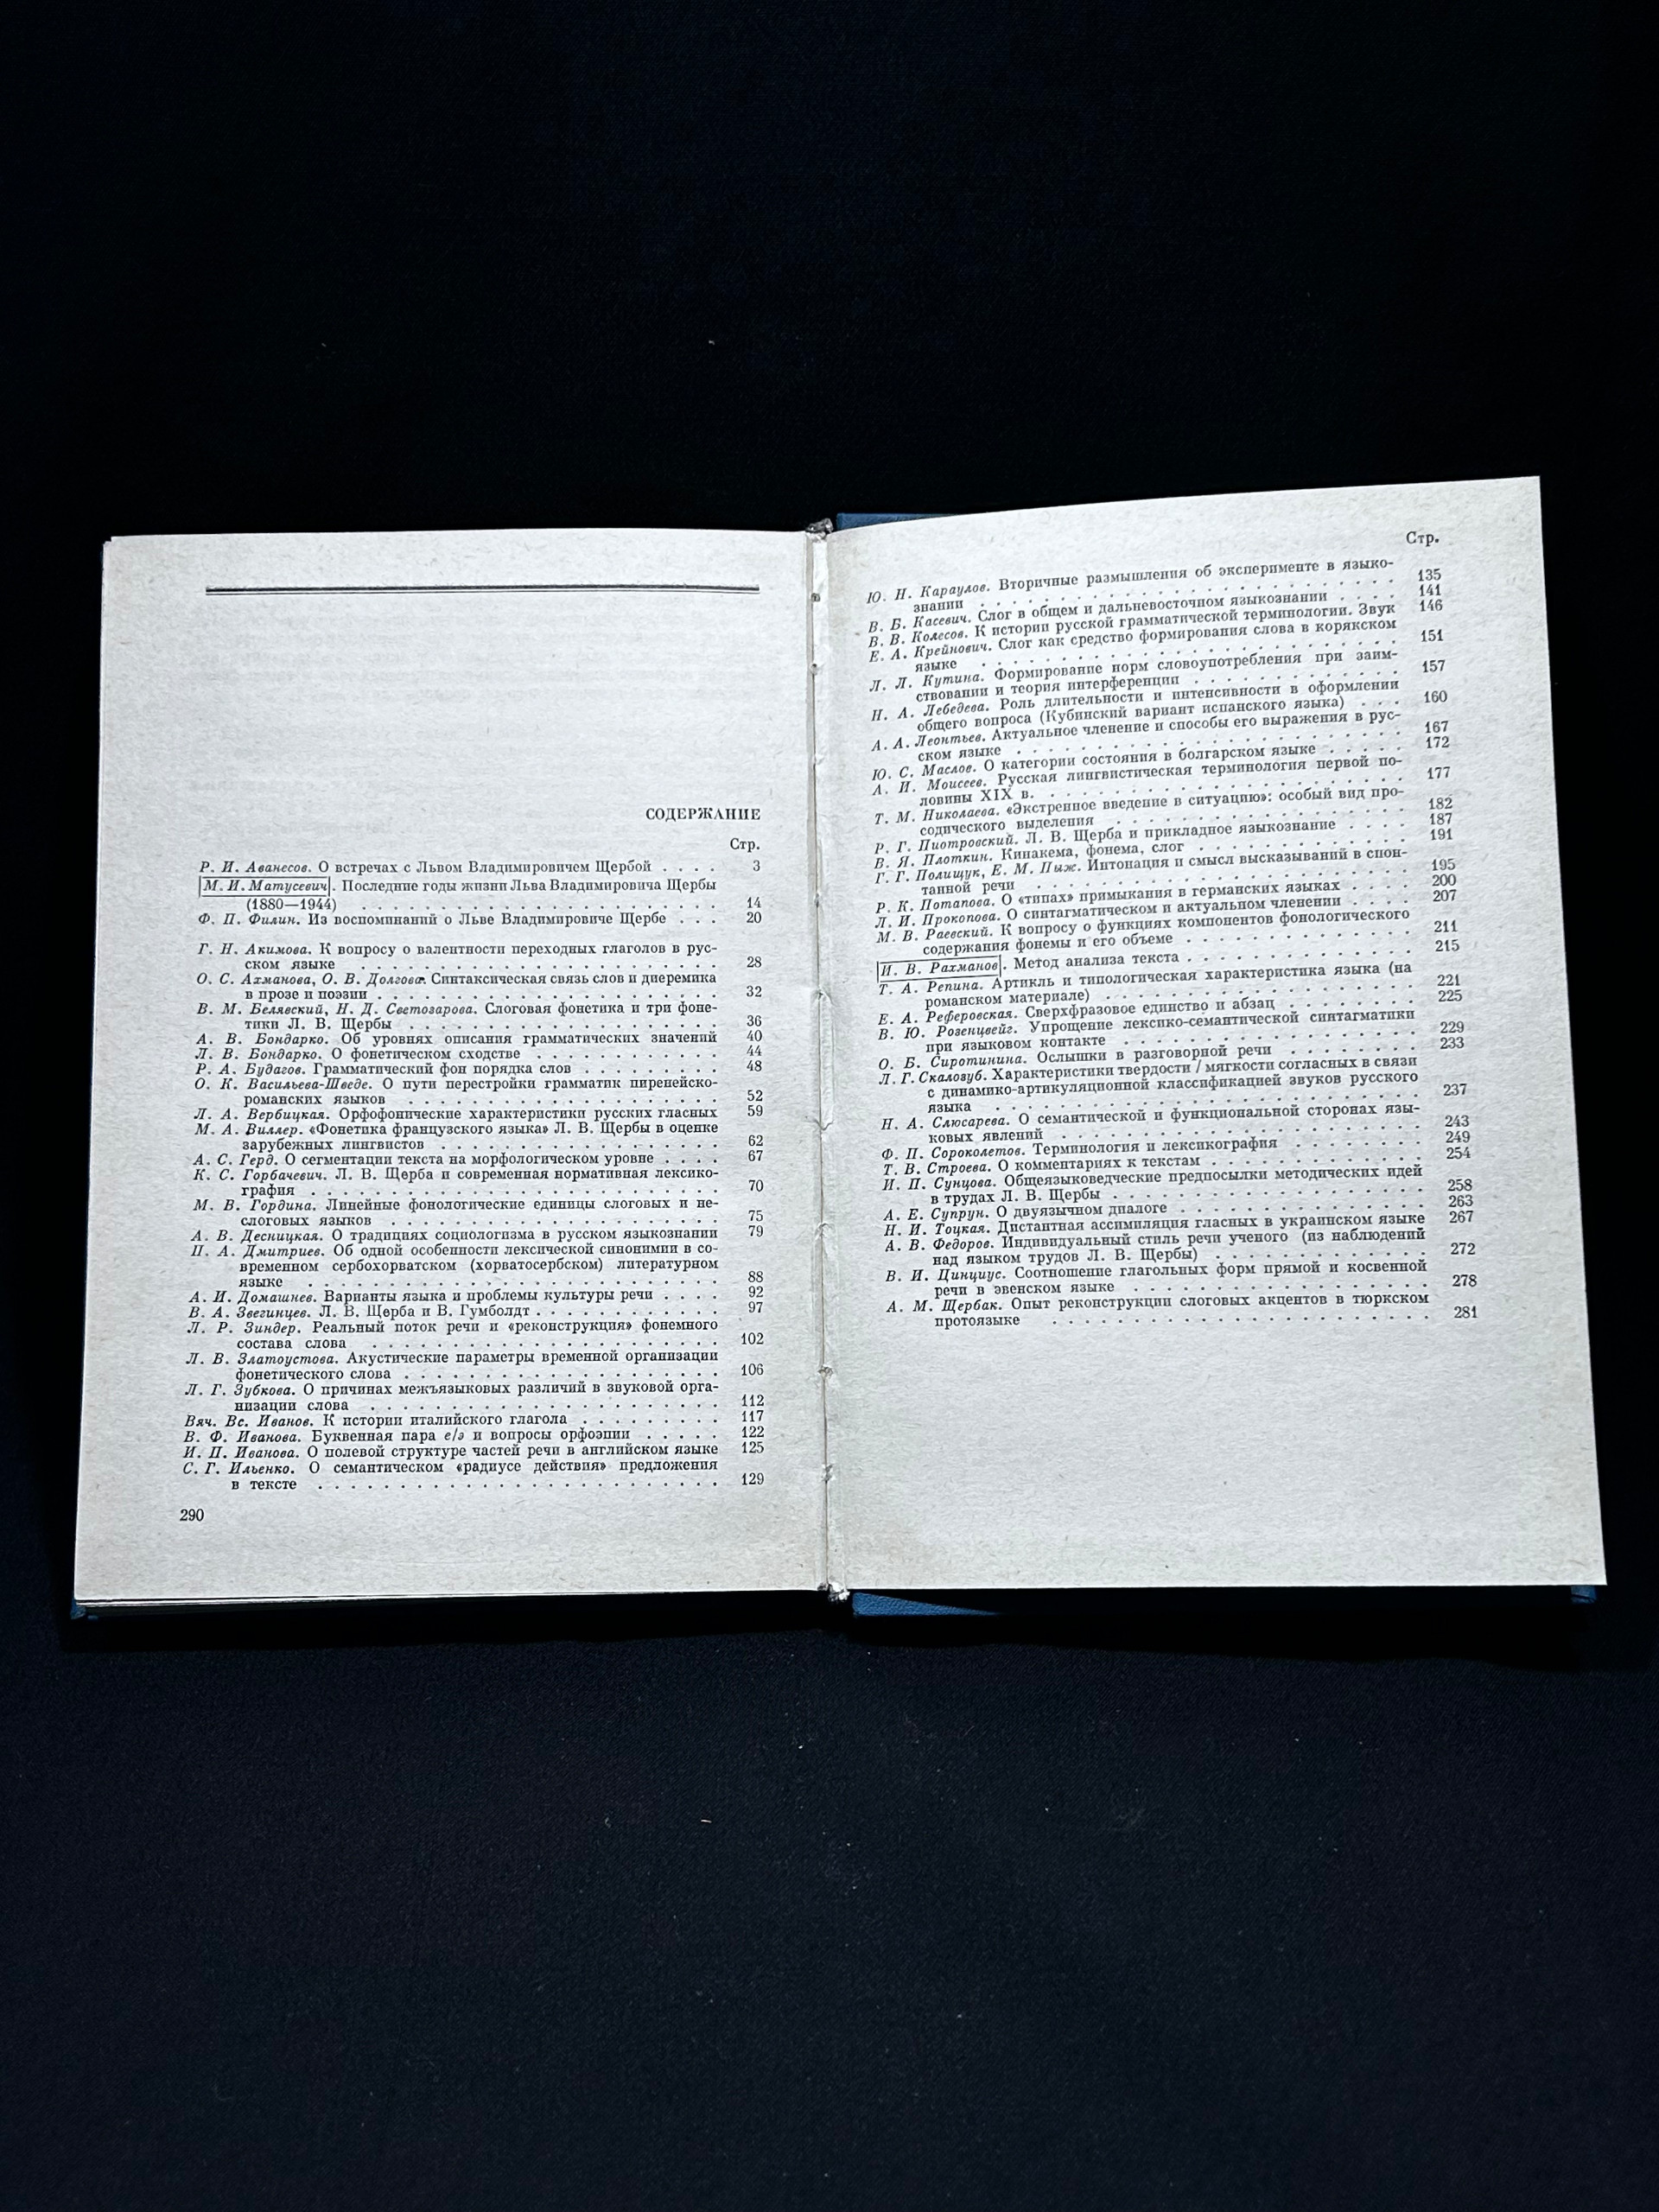 СОДЕРЖАНИЕ
Стр.
Р. И. Аванесов. О встречах с Львом Владимировичем Щербой . . . . 3
М. И. Матусевич. Последние годы жизни Льва Владимировича Щербы
(1880—1944) . . . . . . . . . . . . . . . . . . . . . . 14
Ф. П. Филин. Из воспоминаний о Льве Владимировиче Щербе . . . 20
Г. Н. Акимова. К вопросу о валентности переходных глаголов в рус-
ском языке . . . . . . . . . . . . . . . . . . . . . . 28
О. С. Ахманова, О. В. Долгова. Синтаксическая связь слов и диеремика
в прозе и поэзии . . . . . . . . . . . . . . . . . . . . . 32
В. М. Белявский, Н. Д. Светозарова. Слоговая фонетика и три фоне-
тики Л. В. Щербы . . . . . . . . . . . . . . . . . . . 36
А. В. Бондарко. Об уровнях описания грамматических значений 40
Л. В. Бондарко. О фонетическом сходстве . . . . . . . . . . . 44
Р. А. Будагов. Грамматический фон порядка слов . . . . . . . . . 48
О. К. Васильева-Шведе. О пути перестройки грамматик пиренейско-
романских языков . . . . . . . . . . . . . . . . . . . 52
Л. А. Вербицкая. Орфофонические характеристики русских гласных 59
М. А. Виллер. «Фонетика французского языка» Л. В. Щербы в оценке
зарубежных лингвистов . . . . . . . . . . . . . . . . . . 62
А. С. Герд. О сегментации текста на морфологическом уровне . . . . 67
К. С. Горбачевич. Л. В. Щерба и современная нормативная лексико-
графия . . . . . . . . . . . . . . . . . . . . . . . . . 70
М. В. Гордина. Линейные фонологические единицы слоговых и не-
слоговых языков . . . . . . . . . . . . . . . . . . . . 75
А. В. Десницкая. О традициях социологизма в русском языкознании 79
П. А. Дмитриев. Об одной особенности лексической синонимии в со-
временном сербохорватском (хорватосербском) литературном
языке . . . . . . . . . . . . . . . . . . . . . . . . . 88
А. И. Домашнев. Варианты языка и проблемы культуры речи . . . . 92
В. А. Звегинцев. Л. В. Щерба и В. Гумболдт . . . . . . . . . . . 97
Л. Р. Зиндер. Реальный поток речи и «реконструкция» фонемного
состава слова . . . . . . . . . . . . . . . . . . . . . 102
Л. В. Златоустова. Акустические параметры временной организации
фонетического слова . . . . . . . . . . . . . . . . . . . 106
Л. Г. Зубкова. О причинах межъязыковых различий в звуковой орга-
низации слова . . . . . . . . . . . . . . . . . . . . . 112
Вяч. Вс. Иванов. К истории италийского глагола . . . . . . . . . 117
В. Ф. Иванова. Буквенная пара е/э и вопросы орфоэпии . . . . . 122
И. П. Иванова. О полевой структуре частей речи в английском языке 125
С. Г. Ильенко. О семантическом «радиусе действия» предложения
в тексте . . . . . . . . . . . . . . . . . . . . . . . . 129
290
Стр.
Ю. Н. Караулов. Вторичные размышления об эксперименте в языко-
знании . . . . . . . . . . . . . . . . . . . . . . . . . 135
В. Б. Касевич. Слог в общем и дальневосточном языкознании . . . . 141
В. В. Колесов. К истории русской грамматической терминологии. Звук 146
Е. А. Крейнович. Слог как средство формирования слова в корякском
языке . . . . . . . . . . . . . . . . . . . . . . . . . 151
Л. Л. Кутина. Формирование норм словоупотребления при заим-
ствовании и теория интерференции . . . . . . . . . . . . . 157
Н. А. Лебедева. Роль длительности и интенсивности в оформлении
общего вопроса (Кубинский вариант испанского языка) . . . 160
А. А. Леонтьев. Актуальное членение и способы его выражения в рус-
ском языке . . . . . . . . . . . . . . . . . . . . . . 167
Ю. С. Маслов. О категории состояния в болгарском языке . . . . . 172
А. И. Моисеев. Русская лингвистическая терминология первой по-
ловины XIX в. . . . . . . . . . . . . . . . . . . . . . 177
Т. М. Николаева. «Экстренное введение в ситуацию»: особый вид про-
содического выделения . . . . . . . . . . . . . . . . . . 182
Р. Г. Пиотровский. Л. В. Щерба и прикладное языкознание . . . . 187
В. Я. Плоткин. Кинакема, фонема, слог . . . . . . . . . . . . . 191
Г. Г. Полищук, Е. М. Пыж. Интонация и смысл высказываний в спон-
танной речи . . . . . . . . . . . . . . . . . . . . . . 195
Р. К. Потапова. О «типах» примыкания в германских языках . . . . 200
Л. И. Прокопова. О синтагматическом и актуальном членении . . . . 207
М. В. Раевский. К вопросу о функциях компонентов фонологического
содержания фонемы и его объеме . . . . . . . . . . . . . 211
И. В. Рахманов. Метод анализа текста . . . . . . . . . . . . . 215
Т. А. Репина. Артикль и типологическая характеристика языка (на
романском материале) . . . . . . . . . . . . . . . . . . 221
Е. А. Реферовская. Сверхфразовое единство и абзац . . . . . . . . 225
В. Ю. Розенцвейг. Упрощение лексико-семантической синтагматики
при языковом контакте . . . . . . . . . . . . . . . . . 229
О. Б. Сиротинина. Ослышки в разговорной речи . . . . . . . . 233
Л. Г. Скалозуб. Характеристики твердости / мягкости согласных в связи
с динамико-артикуляционной классификацией звуков русского
языка . . . . . . . . . . . . . . . . . . . . . . . . . 237
Н. А. Слюсарева. О семантической и функциональной сторонах язы-
ковых явлений . . . . . . . . . . . . . . . . . . . . . 243
Ф. П. Сороколетов. Терминология и лексикография . . . . . . . 249
Т. В. Строева. О комментариях к текстам . . . . . . . . . . . . 254
И. П. Сунцова. Общеязыковедческие предпосылки методических идей
в трудах Л. В. Щербы . . . . . . . . . . . . . . . . . . 258
А. Е. Супрун. О двуязычном диалоге . . . . . . . . . . . . . . 263
Н. И. Тоцкая. Дистантная ассимиляция гласных в украинском языке 267
А. В. Федоров. Индивидуальный стиль речи ученого (из наблюдений
над языком трудов Л. В. Щербы) . . . . . . . . . . . . . 272
В. И. Цинциус. Соотношение глагольных форм прямой и косвенной
речи в эвенском языке . . . . . . . . . . . . . . . . . . 278
А. М. Щербак. Опыт реконструкции слоговых акцентов в тюркском
протоязыке . . . . . . . . . . . . . . . . . . . . . . 281